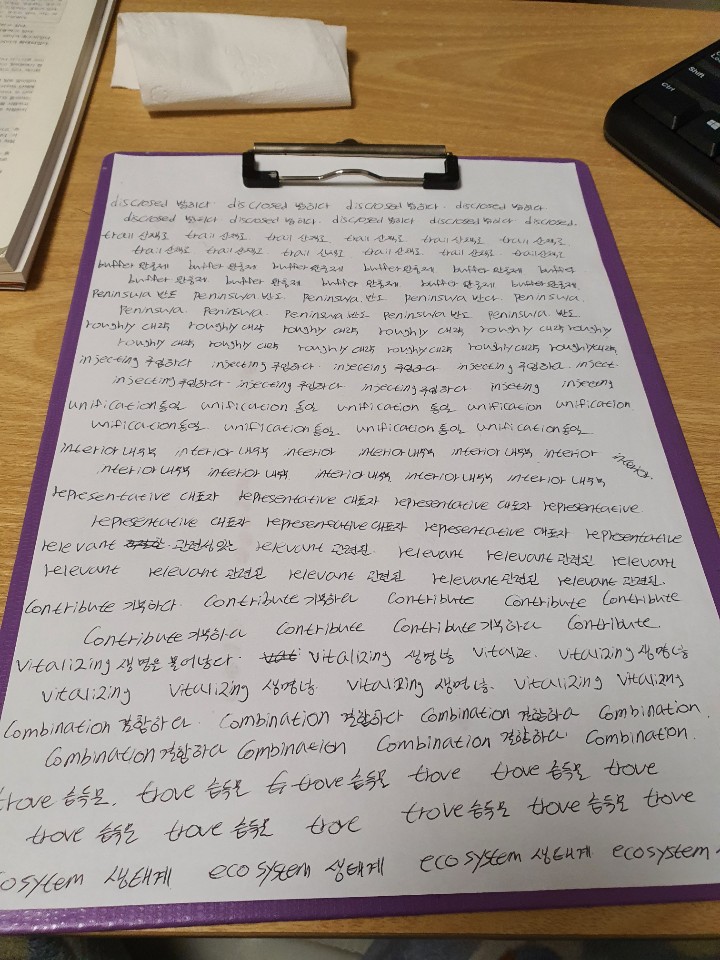 disclosed 밝히다 disclosed 밝히다 disclosed 밝히다 disclosed 밝히다
disclosed 밝히다 disclosed 밝히다 disclosed 밝히다 disclosed 밝히다 disclosed.
trail 산책로 trail 산책로 trail 산책로 trail 산책로 trail 산책로
trail 산책로 trail 산책로 trail 산책로 trail 산책로 trail 산책로
buffer 완충제 buffer 완충제 buffer 완충제 buffer 완충제 buffer 완충제 buffer
buffer 완충제 buffer 완충제 buffer 완충제 buffer 완충제 buffer 완충제
Peninsula 반도 Peninsula 반도 Peninsula. 반도 Peninsula 반도 Peninsula.
Peninsula. Peninsula. Peninsula 반도 Peninsula 반도 Peninsula.
roughly 대략 roughly 대략 roughly 대략 roughly 대략 roughly 대략 roughly
roughly 대략 roughly 대략 roughly 대략 roughly 대략 roughly 대략 roughly 대략
insecting 주입하다 insecting 주입하다 insecting 주입하다 insecting 주입하다 insect.
insecting 주입하다 insecting 주입하다 insecting 주입하다 inseting insecting
unification 통일 unification 통일 unification 통일 unification unification.
unification 통일 unification 통일. unification 통일 unification 통일
interior 내부 interior 내부 interior interior 내부 interior 내부 interior interior.
interior 내부 interior 내부 interior 내부 interior 내부 interior 내부
representative 대표자 representative 대표자 representative 대표자 representative.
representative 대표자 representative 대표자 representative 대표자 representative
relevant 관련있는 relevant 관련된. relevant relevant 관련된 relevant
relevant relevant 관련된 relevant 관련된 relevant 관련된 relevant 관련된.
Contribute 기부하다 Contribute 기부하다 Contribute Contribute Contribute
Contribute 기부하다 Contribute Contribute 기부하다 Contribute.
Vitalizing 생명을 불어넣다. Vitalizing 생명넣 Vitalize. Vitalizing 생명넣
Vitalizing Vitalizing 생명넣 Vitalizing 생명넣. Vitalizing Vitalizing
Combination 결합하다. Combination 결합하다 Combination 결합하다 Combination.
Combination 결합하다 Combination Combination 결합하다 Combination.
trove 습득물. trove 습득물 trove 습득물 trove trove 습득물 trove
trove 습득물 trove 습득물 trove trove 습득물 trove 습득물 trove
cosytem 생태계 ecosystem 생태계 ecosystem 생태계 ecosystem
Ctrl
Shift